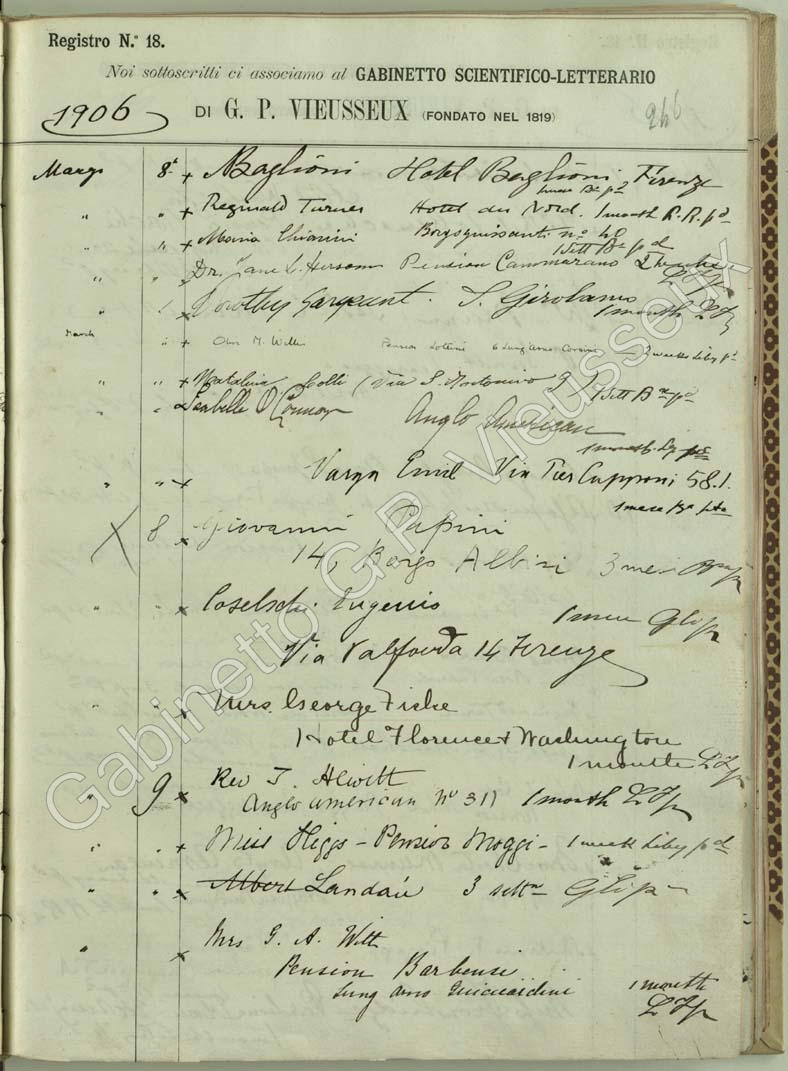 Registro N.º 18.
Noi sottoscritti ci associamo al GABINETTO SCIENTIFICO-LETTERARIO
1906 DI G. P. VIEUSSEUX (FONDATO NEL 1819) 246
Marzo 8 + Baglioni Hotel Baglioni Firenze
1 mese Bn pd
" " + Reginald Turner Hotel du Nord. 1 month R.R. pd
" " + Maria Chiarini Borgognissanti nº
1 sett Bn pd
" " Dr. Jane L. Pension Cammarano 2 weeks
" x Dorothy Sargeant. S. Girolamo
1 month
March " + M. Pension 6 Lung'Arno Corsini 3 weeks Liby pd
" " + Natalina (Via S. Antonino 9) 1 sett Bn pd
" Isabelle O'Connor Anglo American
1 month Liby pd
" " x Varga Emil Via Pier Capponi 58.1.
1 mese Bn
X 8 x Giovanni Papini
14, Borgo Albizi 3 mesi
" " x Coselschi Eugenio 1 mese
Via Valfonda 14 Firenze
" " x Mrs. George Fiske
Hotel Florence & Washington
1 month
" 9 x Rev J. Hewitt
Anglo american Nº 311 1 month
" " + Miss Higgs - Pension Moggi - 1 week Liby pd
" " x Albert Landau 3 sett
" x Mrs G. A. Witt
Pension Barbensi
Lung Arno Guicciardini 1 month
Gabinetto G.P. Vieusseux